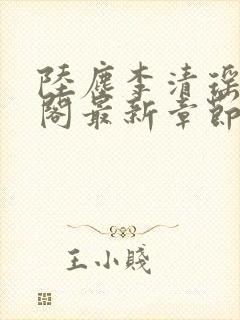 陸塵李清瑤
閣最新章節
王小賤